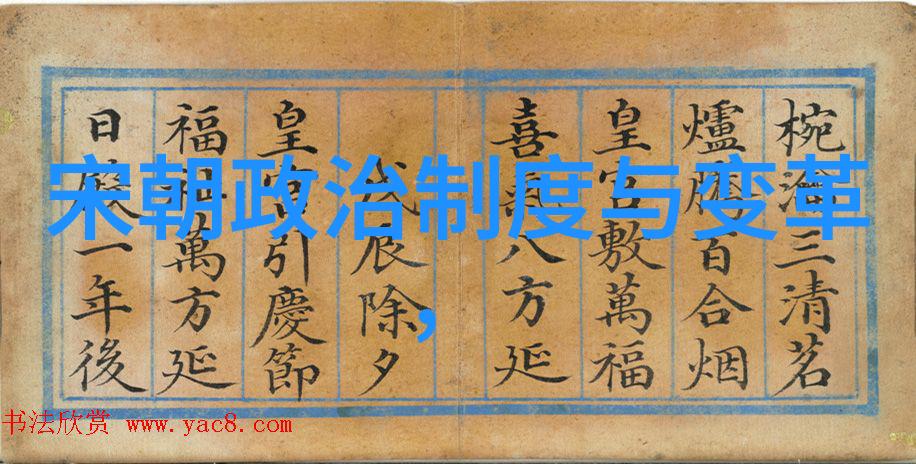 椀三清茗
爐騰百合烟
皇宫敷萬福
喜氣八方延
戊辰除夕
皇宫引慶節
福祉萬方延
日一年後
宋朝政治制度与变革
,
书法欣赏 www.yac8.com